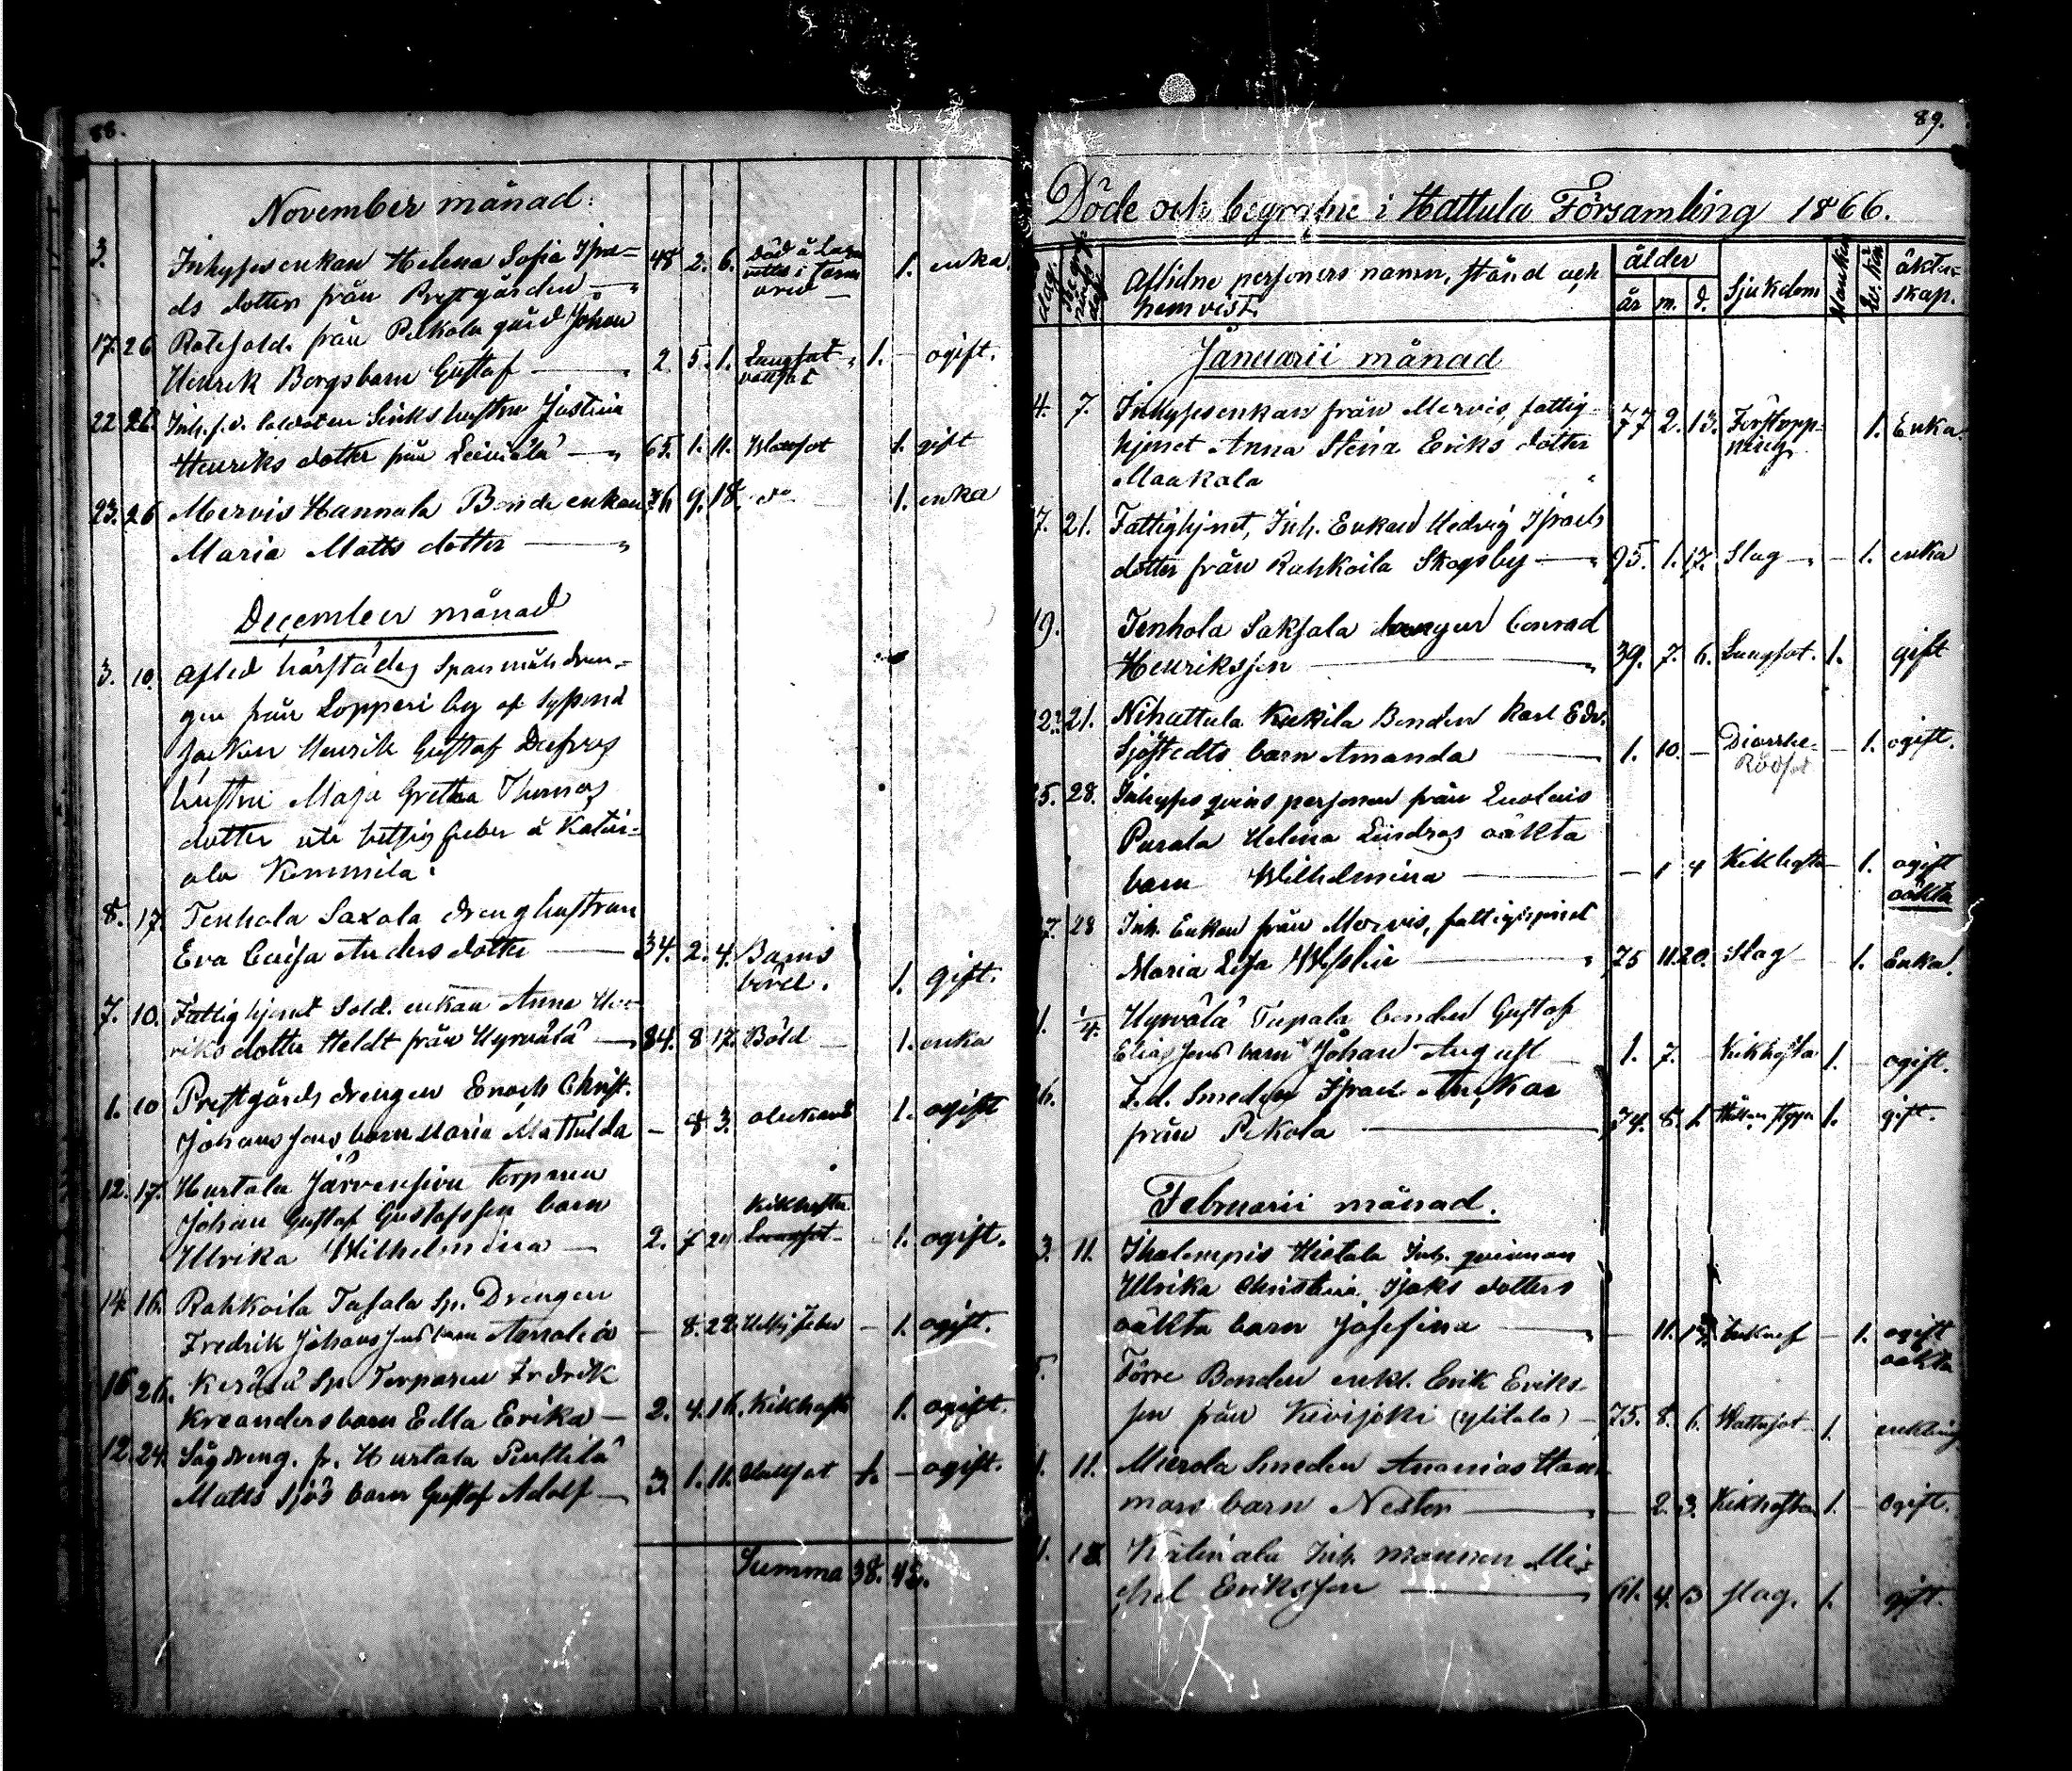 88.
November månad.
3. Inhyses enkan Helena Sofia Isra- 48 2. 6. Död å Lazarettet i Tavm 1. enka
ds dotter från Prestgården
17. 26 Rotesold. från Pelkola gård Johan
Henrik Bergs barn Gustaf 2. 5. 1. Lungsot 1. ogift.
22 26 Inh. f.d. Soldaten hustru Justina
Henriks dotter från Leiniälä 65. 1. 11. 1. gift
23. 26 Mervis Hannala Bonde enkan 9. 18. do 1. enka
Maria Matts dotter
December månad
3. 10. Afled härstädes Spanmåls dren-
gen från Lopperi by af Syssmä
socken Henrik Gustaf
hustru Maja Gretha Thomas
dotter uti hetsig feber å Katin-
ala Kommila.
8. 17. Tenhola Saxala dreng hustrun
Eva Caisa Anders dotter 34. 2. 4. Barns
börd. 1. gift.
7. 10. Fattighjonet Sold. enkan Anna Hen-
riks dotter Heldt från Hyrvälä 84. 8 17. Böld 1. enka
1. 10 Prestgårds drengen Enoch Christ.
Johans sons barn Maria Mathilda — 8 3. obekant 1. ogift
12. 17. Hurtala Järvensivu torparen
Johan Gustaf Gustafsson barn Kikhosta
Ulrika Wilhelmina 2. 7 Lungsot 1. ogift.
14. 16. Rahkoila Tasala Sp. Drengen
Fredrik Johans sons barn Amalia — 8. 22. Hetsig feber — 1. ogift.
16 26. Kerälä Sp. Torparen Fredrik
Kreanders barn Edla Erika 2. 4. 16. Kikhosta 1. ogift.
12. 24. Sågdreng. fr. Hurtala Penttilä
Matts Sjös barn Gustaf Adolf 3. 1. 11. 1. — ogift.
Summa 38. 48.
89.
Döde och begrafne i Hattula Församling 1866.
dag. Aflidne personers namn, stånd och hemvist. ålder Sjukdom Mankön Qv. kön äkten-
skap.
år m. d.
Januarii månad
4. 7. Inhyses enkan från Mervis, fattig- 77 2. 13. Förstopp- 1. Enka.
hjonet Anna Stina Eriks dotter ning
Maakala
7. 21. Fattighjonet, Inh. Enkan Hedvig Israels
dotter från Rahkoila Skogsby 95. 1. 17. Slag — 1. enka
19. Tenhola Saksala drengen Conrad
Henriksson 39. 7. 6. Lungsot. 1. gift
21. Nihattula Kukila Bonden Karl Edv.
Sjöstedts barn Amanda 1. 10. — Diarrhe. — 1. ogift.
Rödsot
25. 28. Inhyses qvins personen från Luolais
Parala Helena Lindros oäkta
barn Wilhelmina — 1 4 Kikhosta 1. ogift
oäkta
27. 28 Inh. Enkan från Mervis, fattighjonet
Maria Lisa 75 11. 20. Slag 1. Enka.
1. 1/4. Hyrvälä Tupala bonden Gustaf
Elias sons barn Johan August 1. 7. Kikhosta 1. ogift.
6. F.d. Smeden Israel
från Pekola 8. 1. 1. gift.
Februarii månad.
3. 11. Ihalempis Hietala Inh. qvinnan
Ulrika Christina Isaks dotters
oäkta barn Josefina — 11. — 1. ogift
oäkta
5. Förre Bonden enkl. Erik Eriks-
son från Kivijoki (ylitalo) 75. 8. 6. Wattusot 1. enkling
1. 11. Mierola Smeden Ananias Ham-
mars barn Nestor — 2. 3. Kikhosta 1. — ogift.
1. 18. Katinala Inh. mannen Mi-
chel Eriksson 61. 4. 13 Slag. 1. gift.